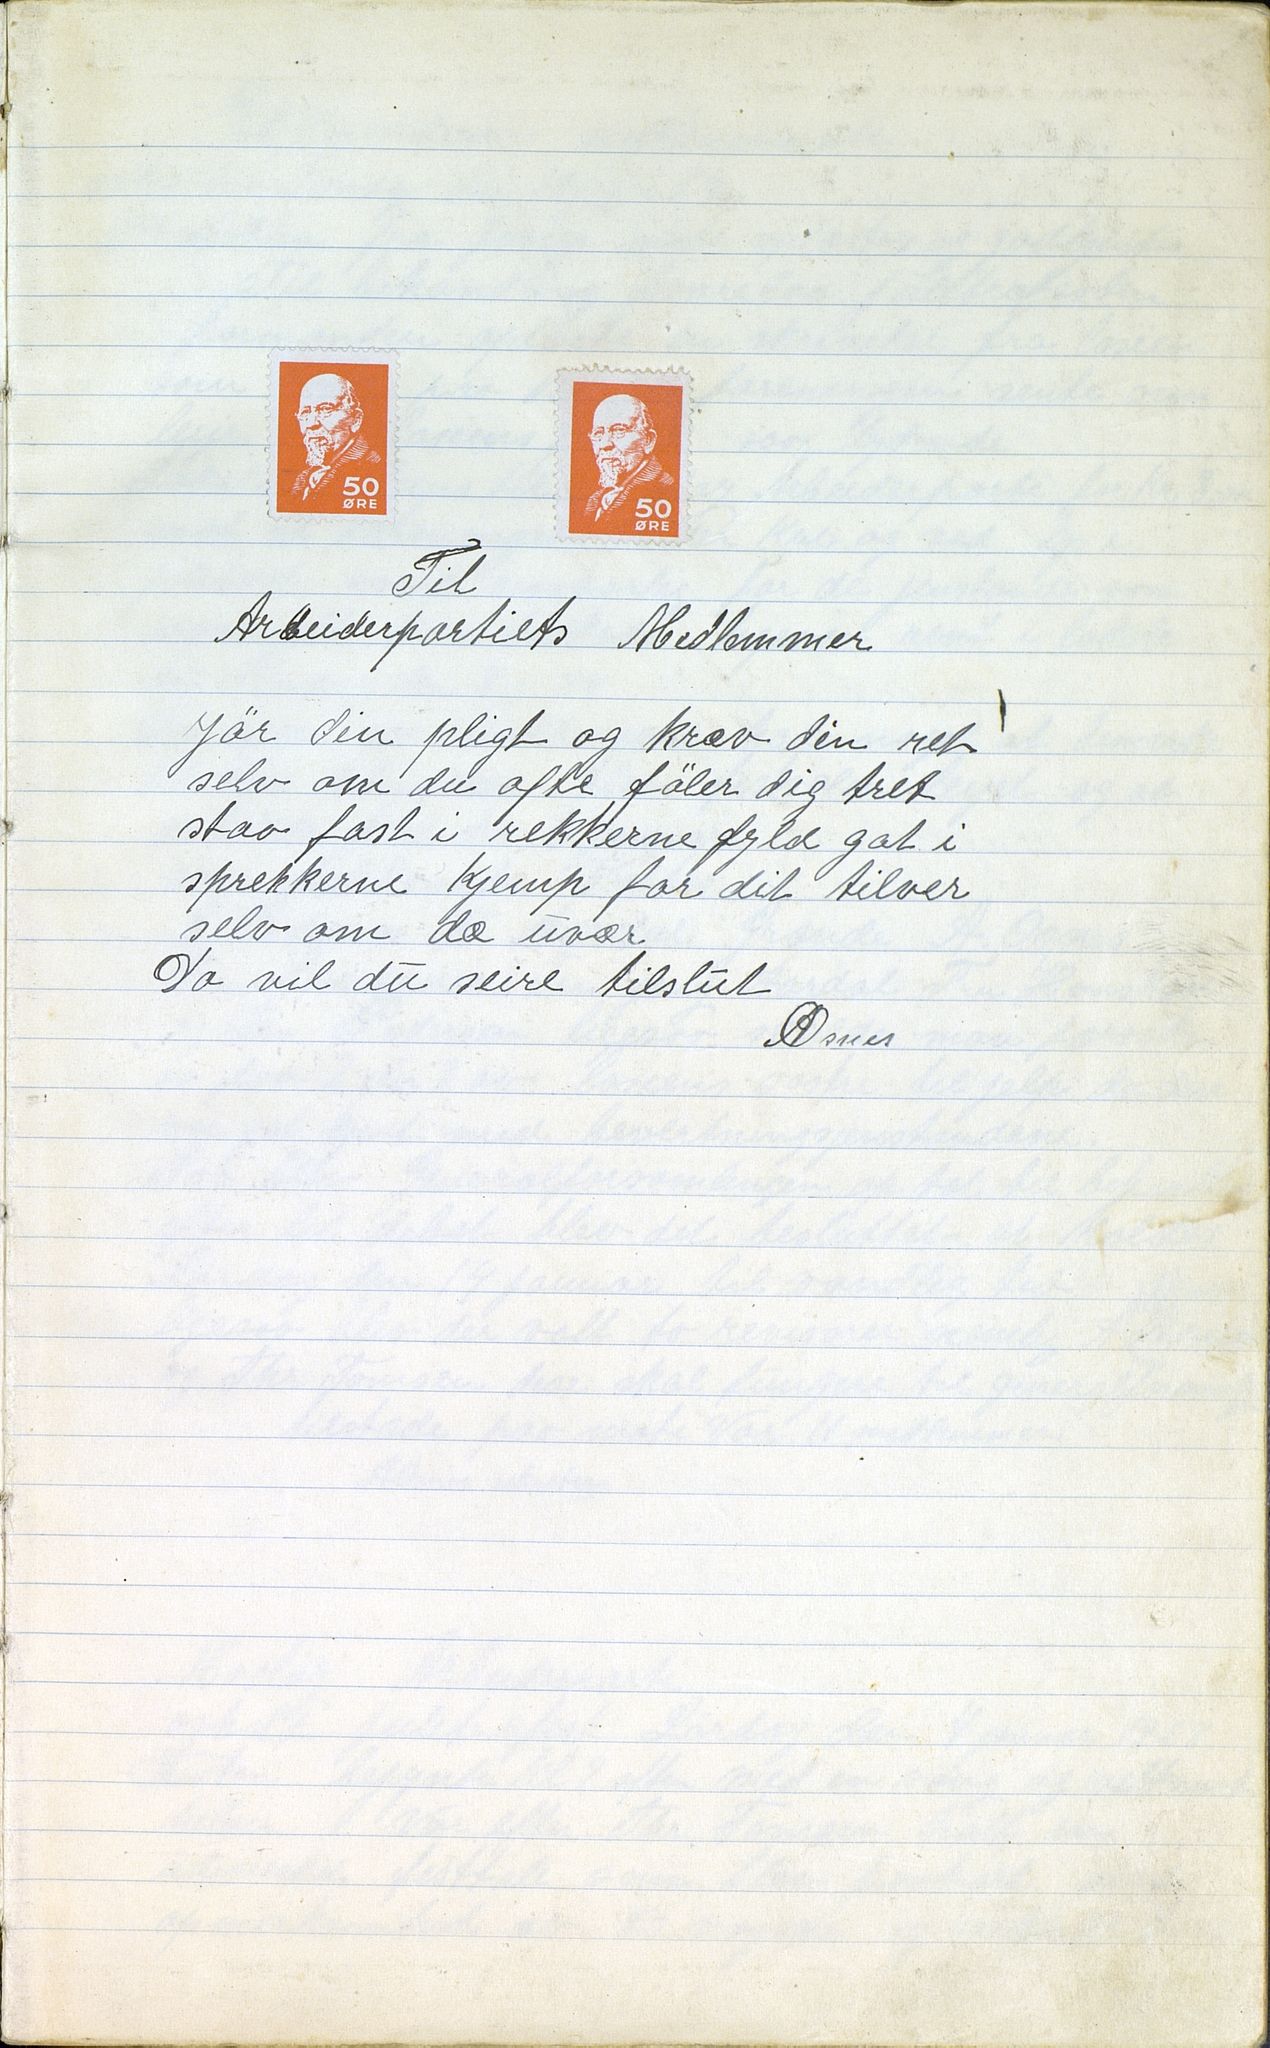 50
ØRE
50
ØRE
Til
Arbeiderpartiets Medlemmer
Jör din pligt og kræv din ret
selv om du ofte föler dig tret
stao fast i rekkerne fyld gat i
sprekkerne Kjemp for dit tilver
selv om dæ uvær
Da vil du seire tilslut
Osnes